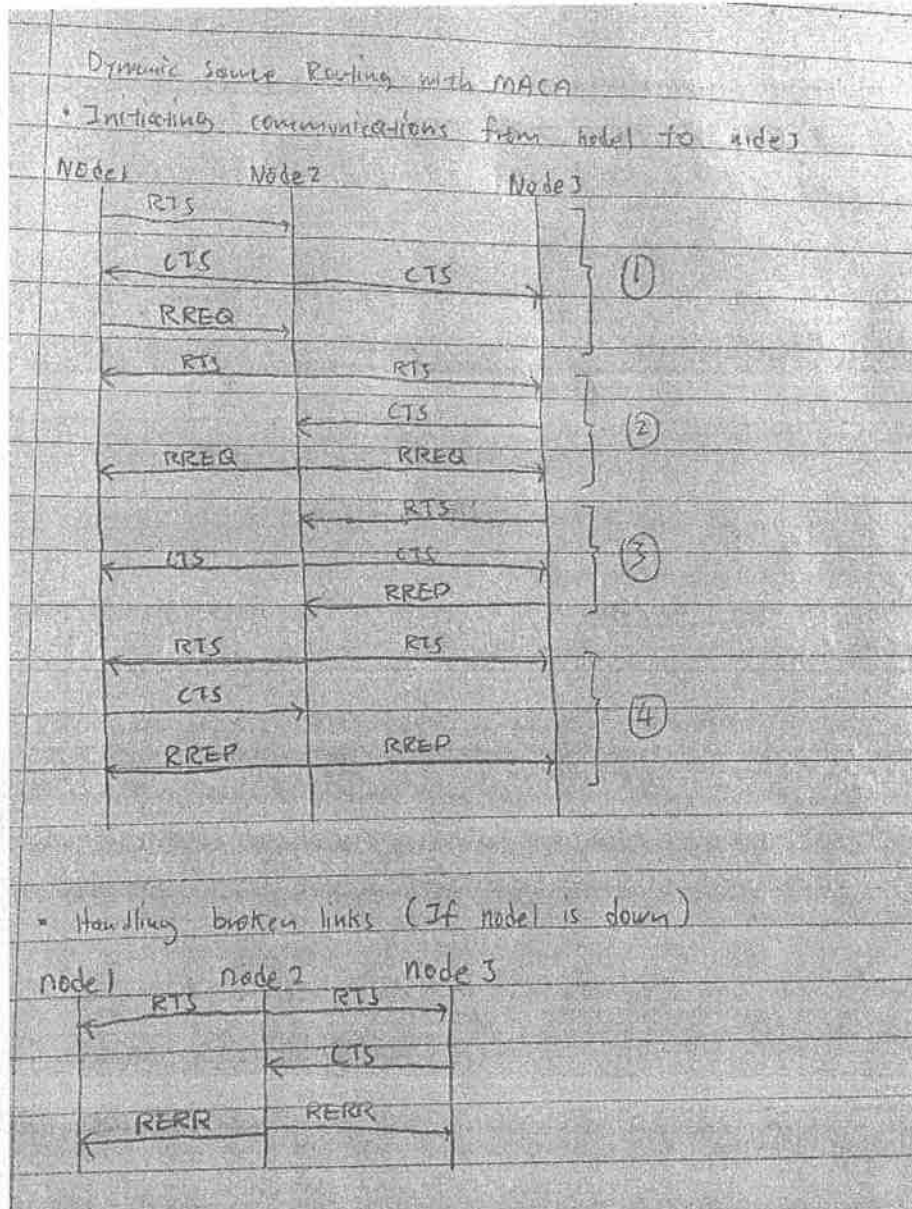 Dynamic Source Routing with MACA
• Initiating communications from node1 to node3
Node1 Node2 Node3
RTS
CTS CTS
①
RREQ
RTS RTS
CTS
②
RREQ RREQ
RTS
CTS CTS
③
RREP
RTS RTS
CTS
④
RREP RREP
• Handling broken links (If node1 is down)
node1 node2 node3
RTS RTS
CTS
RERR RERR